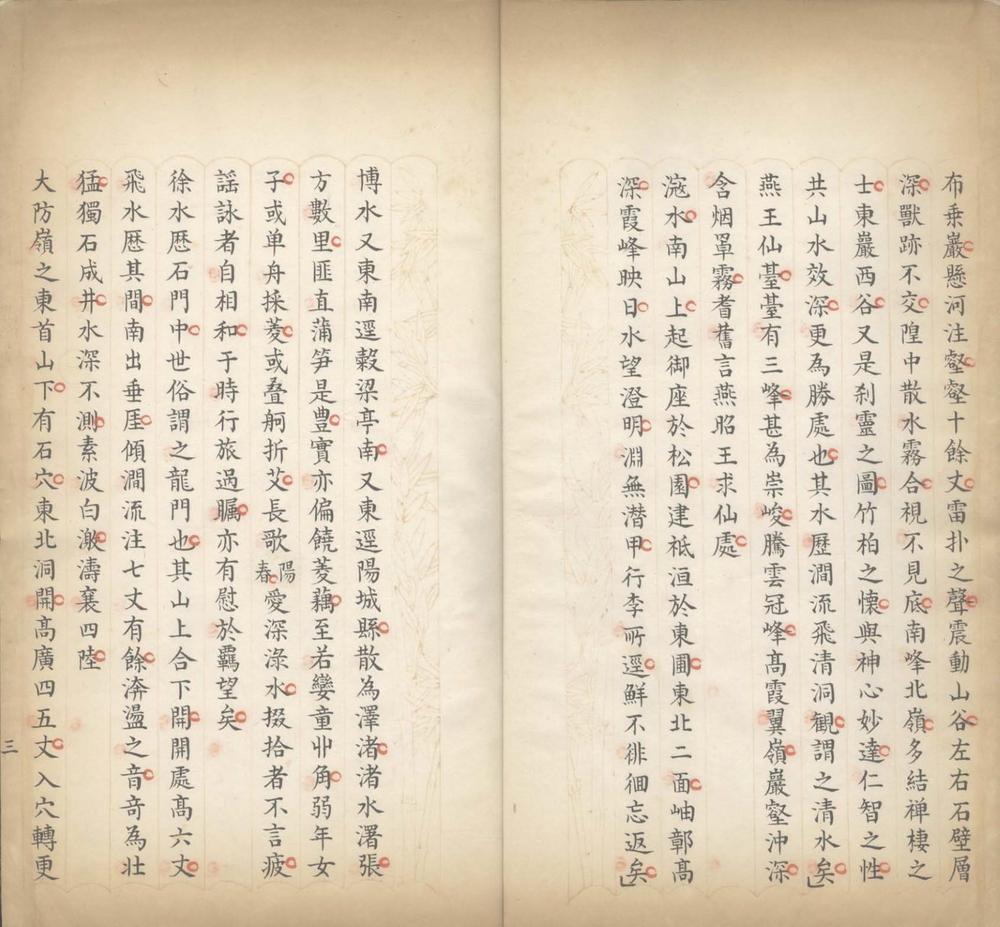 布乗巖懸河注壑壑十餘丈雷扑之聲震動山谷左右石壁層
深獸跡不交隍中散水霧合視不見底南峰北嶺多結禅棲之
士東巖西谷又是刹靈之圖竹柏之懐與神心妙達仁智之性
共山水效深更為勝處也其水歴澗流飛清洞観謂之清水矣
燕王仙臺臺有三峰甚為崇峻騰雲冠峰髙霞翼嶺巖壑沖深
含烟罩霧耆舊言燕昭王求仙處
㴲水南山上起御座於松園建祗洹於東圃東北二面岫鄣髙
深霞峰映日水望澄明淵無潛甲行李所逕鮮不徘徊忘返矣
博水又東南逕穀梁亭南又東逕陽城縣散為澤渚渚水瀦張
方數里匪直蒲笋是豊實亦偏饒菱藕至若孌童丱角弱年女
子或单舟採菱或叠舸折芰長歌陽春愛深渌水掇拾者不言疲
謡詠者自相和于時行旅過矚亦有慰於羈望矣
徐水歴石門中世俗謂之龍門也其山上合下開開處髙六丈
飛水歴其間南出垂厓傾澗流注七丈有餘渀盪之音竒為壯
猛獨石成井水深不測素波白激濤襄四陸
大防嶺之東首山下有石穴東北洞開髙廣四五丈入穴轉更
三